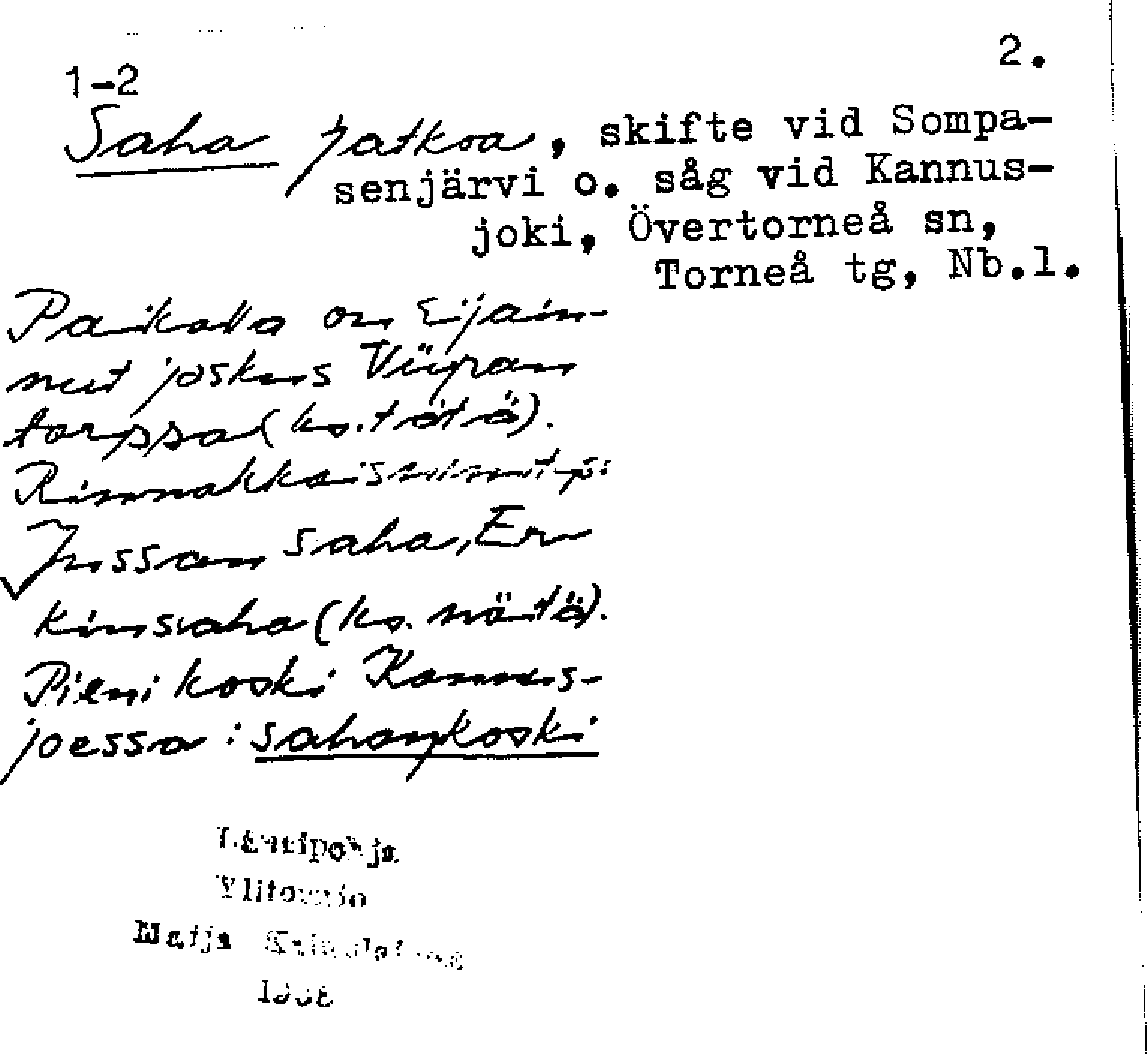 1-2
2.
Saha patkoa, skifte vid Sompa-
senjärvi o. såg vid Kannus-
joki, Övertorneå sn,
Torneå tg, Nb.l.
Paikalla on sijain-
nut joskus Viipan
torppa (ks. tätä).
Rinnakkaisnimityp:
Jussan saha, Er
kinsaha (ks. näitä).
Pieni koski Kannus-
joessa: sahankoski
Länsipohja
Ylitornio
Maija